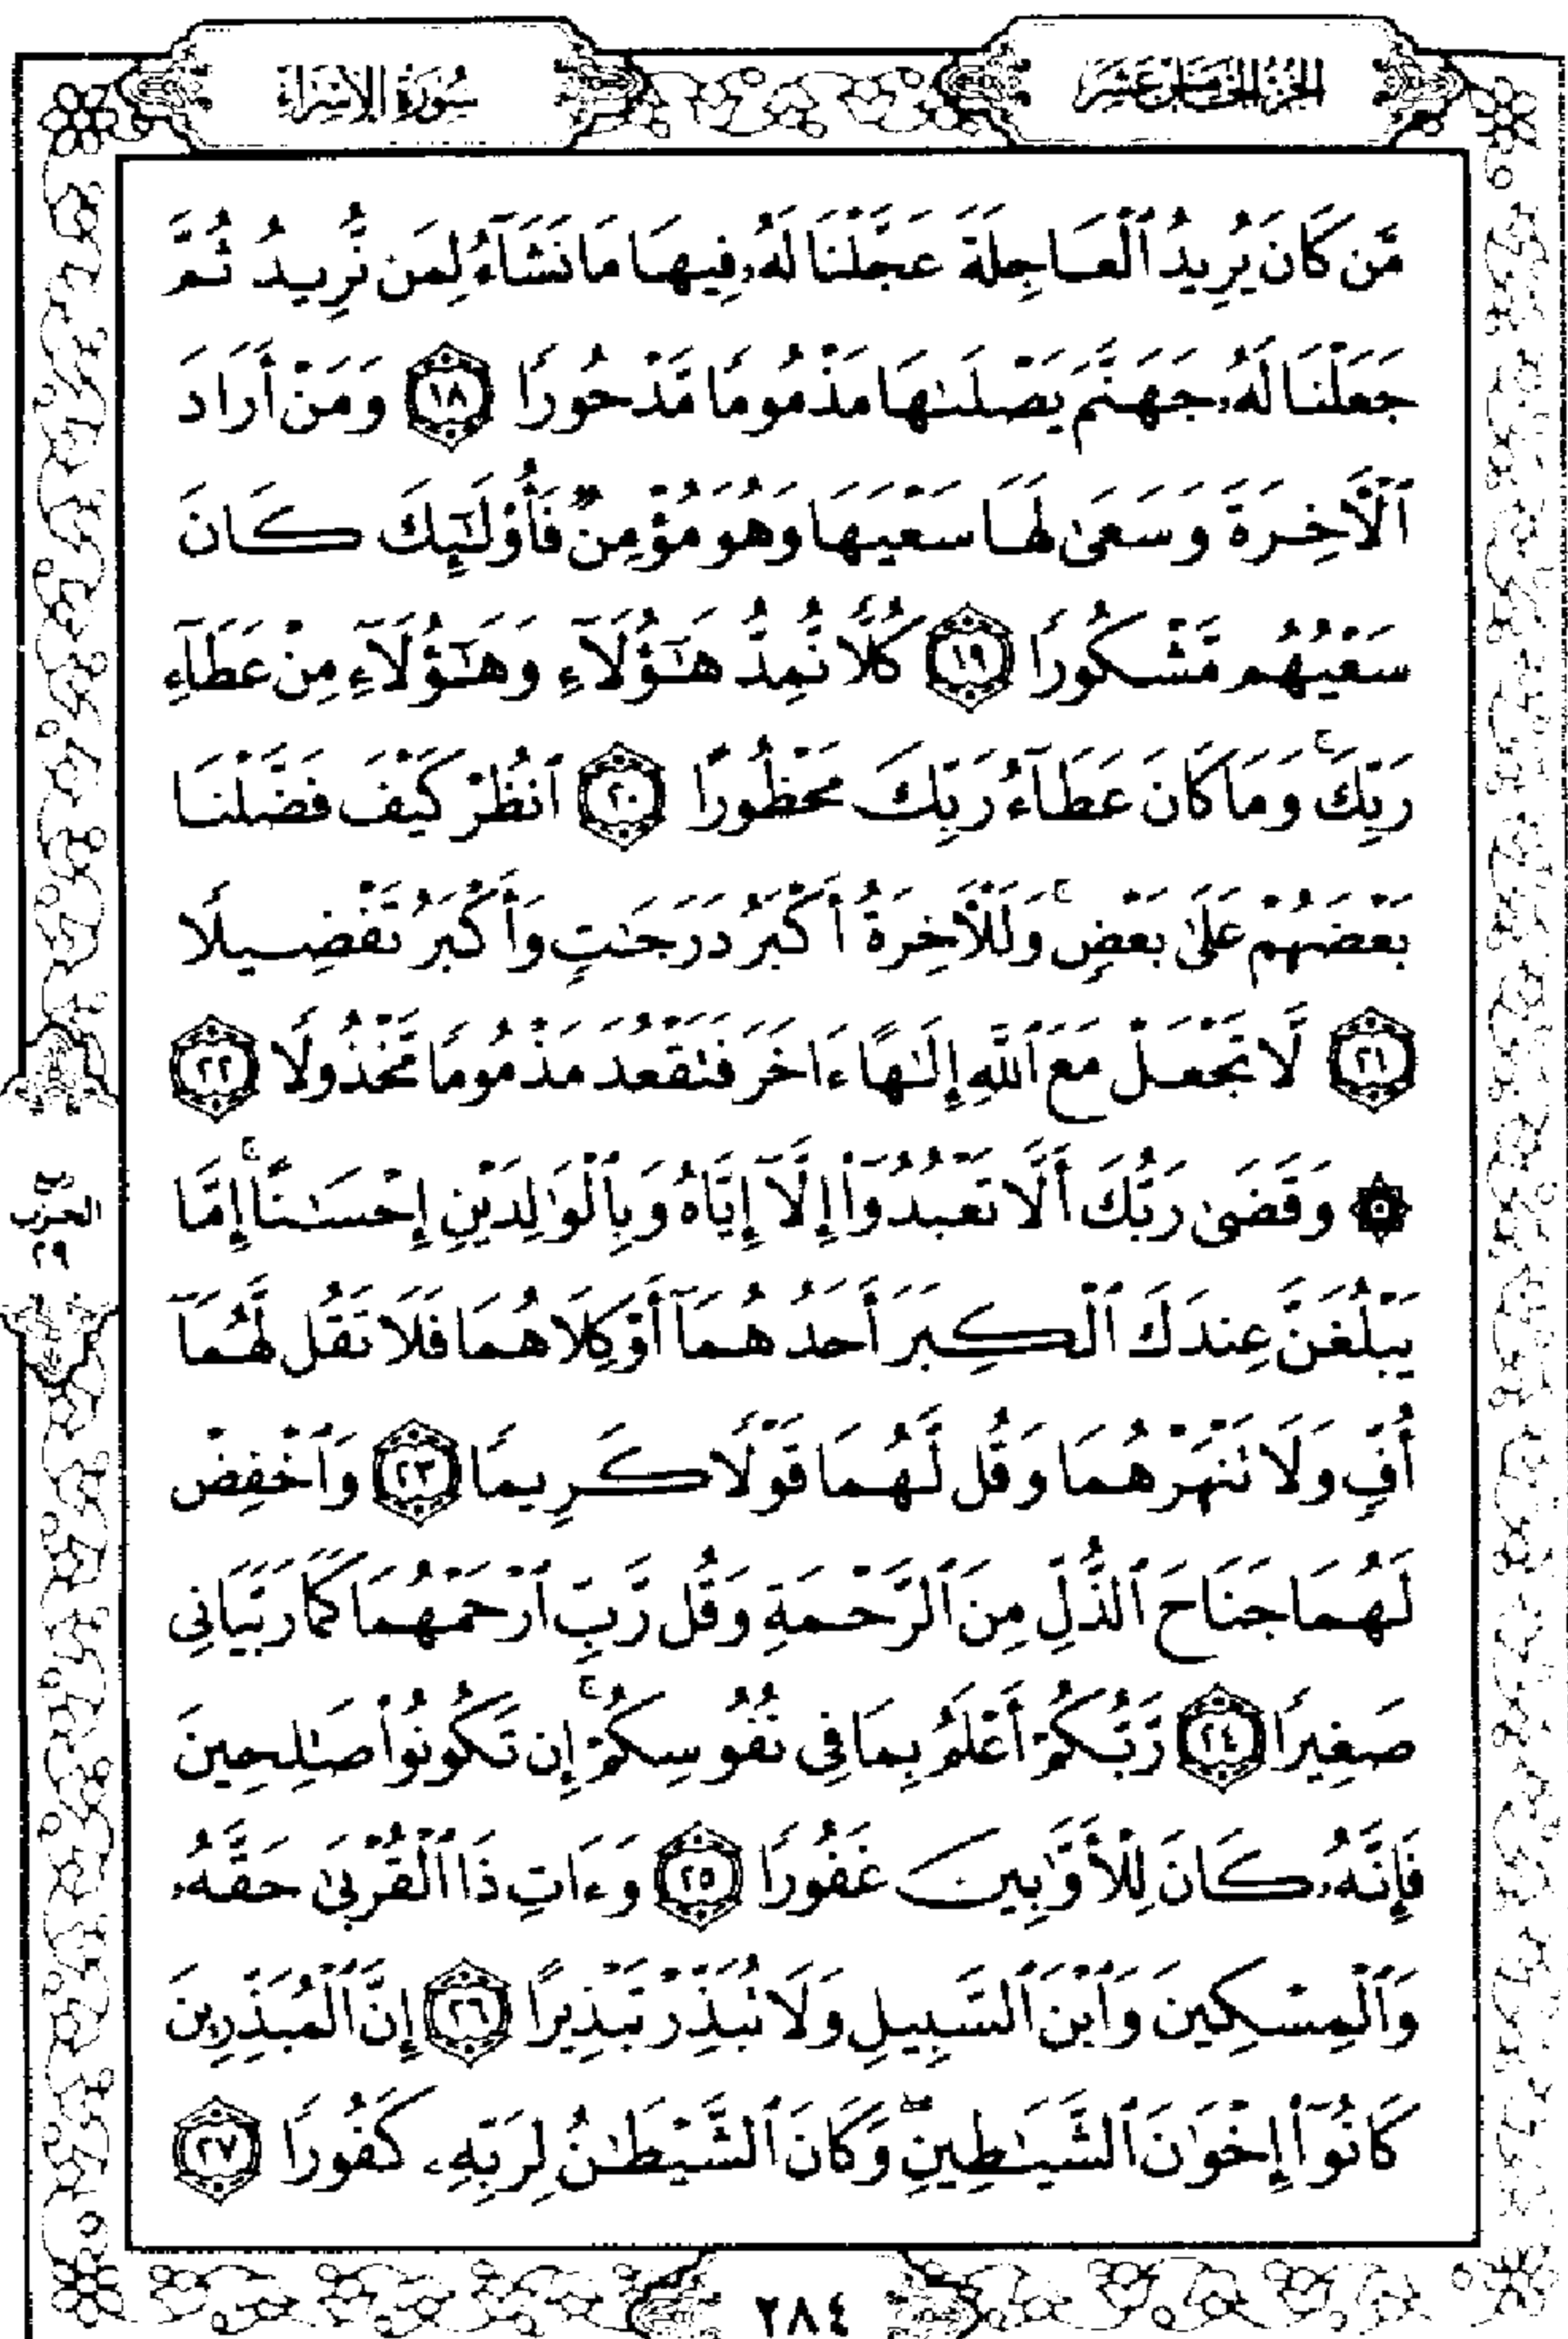 الجزء الخامس عشر
سورة الإسراء
مَّن كَانَ يُرِيدُ ٱلْعَاجِلَةَ عَجَّلْنَا لَهُۥ فِيهَا مَا نَشَآءُ لِمَن نُّرِيدُ ثُمَّ
جَعَلْنَا لَهُۥ جَهَنَّمَ يَصْلَىٰهَا مَذْمُومًا مَّدْحُورًا ١٨ وَمَنْ أَرَادَ
ٱلْأَخِرَةَ وَسَعَىٰ لَهَا سَعْيَهَا وَهُوَ مُؤْمِنٌ فَأُو۟لَٰٓئِكَ كَانَ
سَعْيُهُم مَّشْكُورًا ١٩ كُلًّا نُّمِدُّ هَٰٓؤُلَآءِ وَهَٰٓؤُلَآءِ مِنْ عَطَآءِ
رَبِّكَ ۚ وَمَا كَانَ عَطَآءُ رَبِّكَ مَحْظُورًا ٢٠ ٱنظُرْ كَيْفَ فَضَّلْنَا
بَعْضَهُمْ عَلَىٰ بَعْضٍ ۚ وَلَلْأَخِرَةُ أَكْبَرُ دَرَجَٰتٍ وَأَكْبَرُ تَفْضِيلًا
٢١ لَّا تَجْعَلْ مَعَ ٱللَّهِ إِلَٰهًا ءَاخَرَ فَتَقْعُدَ مَذْمُومًا مَّخْذُولًا ٢٢
۞ وَقَضَىٰ رَبُّكَ أَلَّا تَعْبُدُوٓا۟ إِلَّآ إِيَّاهُ وَبِٱلْوَٰلِدَيْنِ إِحْسَٰنًا ۚ إِمَّا
يَبْلُغَنَّ عِندَكَ ٱلْكِبَرَ أَحَدُهُمَآ أَوْ كِلَاهُمَا فَلَا تَقُل لَّهُمَآ
أُفٍّ وَلَا تَنْهَرْهُمَا وَقُل لَّهُمَا قَوْلًا كَرِيمًا ٢٣ وَٱخْفِضْ
لَهُمَا جَنَاحَ ٱلذُّلِّ مِنَ ٱلرَّحْمَةِ وَقُل رَّبِّ ٱرْحَمْهُمَا كَمَا رَبَّيَانِى
صَغِيرًا ٢٤ رَّبُّكُمْ أَعْلَمُ بِمَا فِى نُفُوسِكُمْ ۚ إِن تَكُونُوا۟ صَٰلِحِينَ
فَإِنَّهُۥ كَانَ لِلْأَوَّٰبِينَ غَفُورًا ٢٥ وَءَاتِ ذَا ٱلْقُرْبَىٰ حَقَّهُۥ
وَٱلْمِسْكِينَ وَٱبْنَ ٱلسَّبِيلِ وَلَا تُبَذِّرْ تَبْذِيرًا ٢٦ إِنَّ ٱلْمُبَذِّرِينَ
كَانُوٓا۟ إِخْوَٰنَ ٱلشَّيَٰطِينِ ۖ وَكَانَ ٱلشَّيْطَٰنُ لِرَبِّهِۦ كَفُورًا ٢٧
الحزب
٢٩
٢٨٤